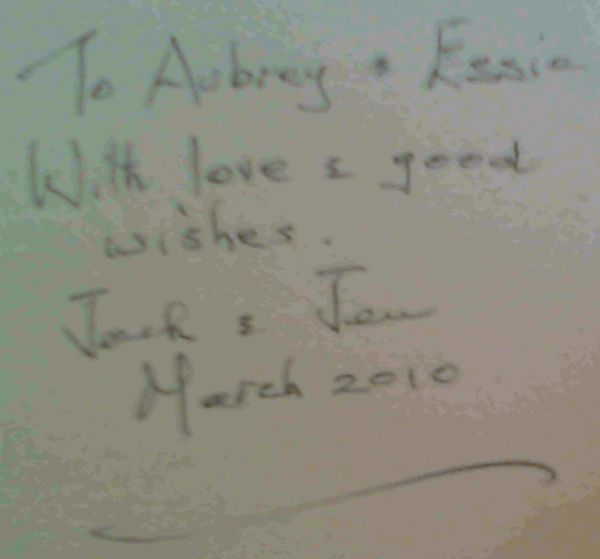 To Aubrey & Essie
With love & good
wishes.
Jack & Jen
March 2010